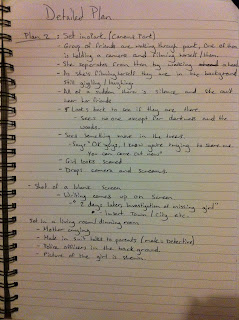 Detailed Plan
Plan 2 : Set in park. (Camera Part)
- Group of friends are walking through park, One of them
is holding a camera and filming herself/them.
- She separates from them by walking ahead
- As she's filming herself they are in the background
still giggling/laughing
- All of a sudden there's silence, and she can't
hear her friends.
- Looks back to see if they are there.
- Sees no one except for darkness and the
woods.
- Sees something move in the trees.
- Says "OK guys, I know you're trying to scare me.
You can come out now"
- Girl looks scared
- Drops camera and screams.
- Shot of a blank screen
- Writing comes up on Screen
- "8 days later, Investigation of missing girl"
- Insert Town/City etc.
Set in a living room/dinning room
- Mother crying
- Male in suit talks to parents (male = Detective)
- Police officers in the background
- Picture of the girl is shown.